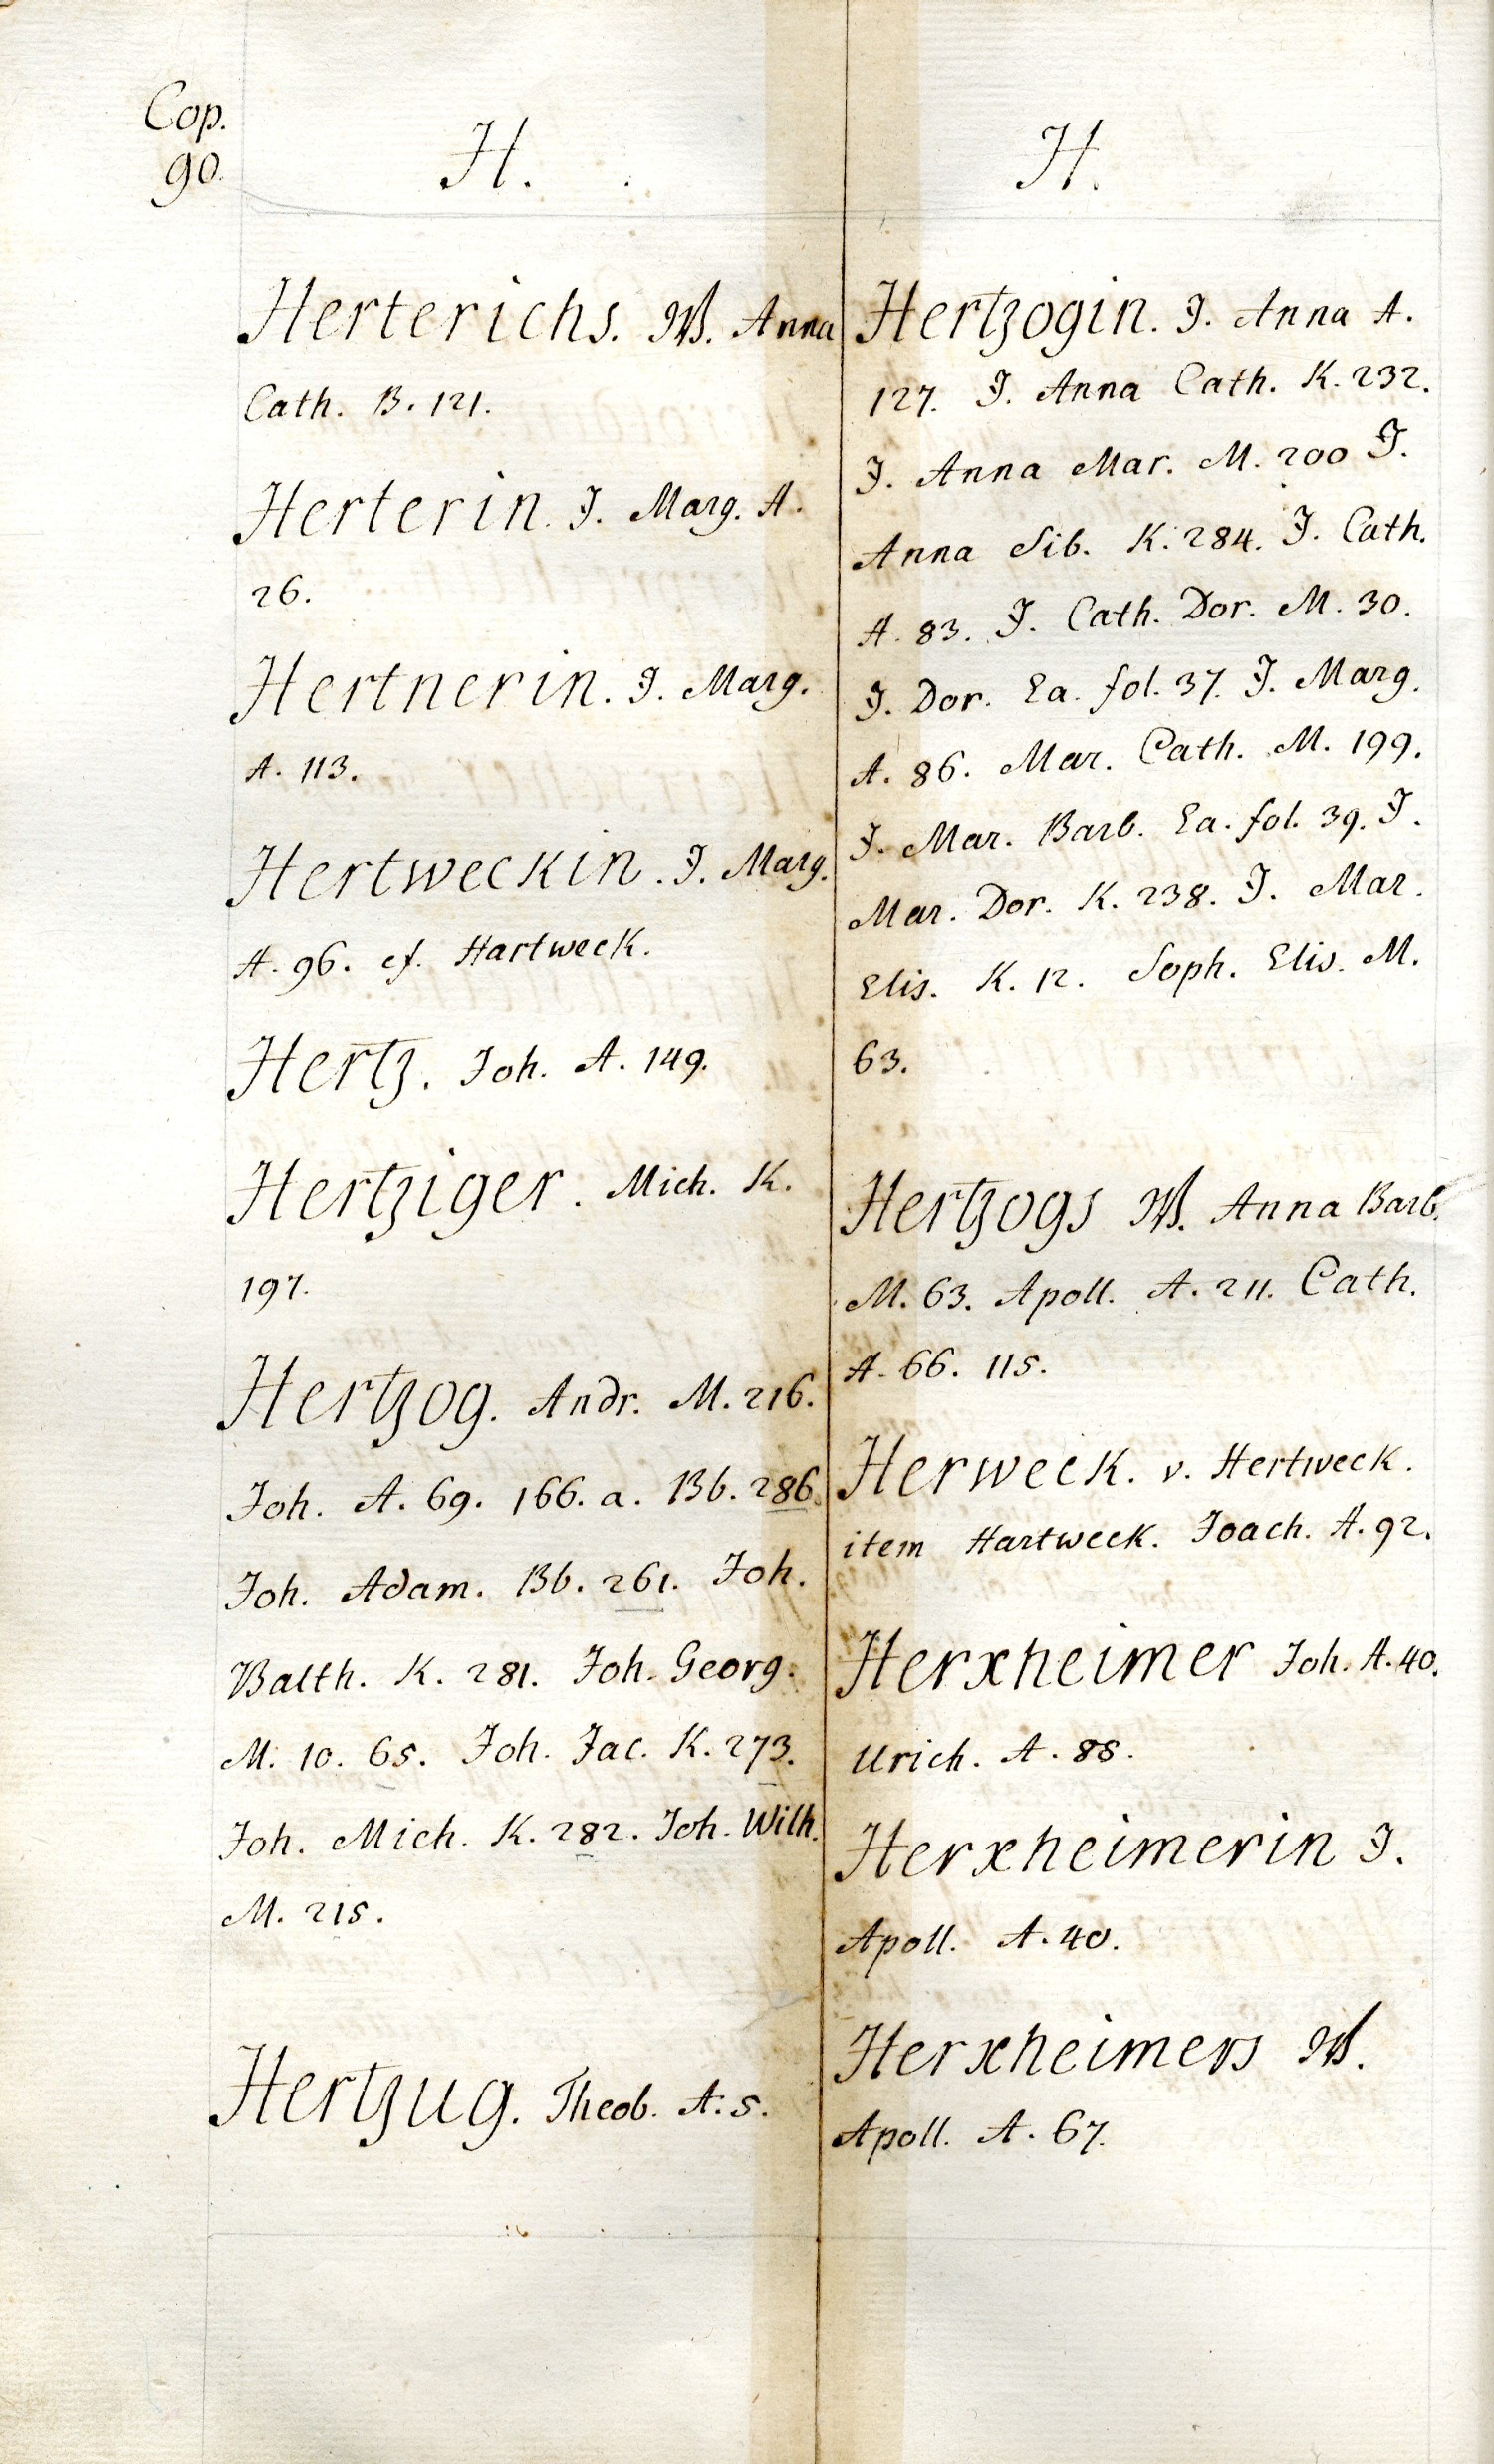 Cop.
90.
H.
Herterichs. W. Anna
Cath. B. 121.
Herterin. J. Marg. A.
26.
Hertnerin. J. Marg.
A. 113.
Hertweckin. J. Marg.
A. 96. cf. Hartweck.
Hertz. Joh. A. 149.
Hertziger. Mich. K.
197.
Hertzog. Andr. M. 216.
Joh. A. 69. 166. a. Bb. 286.
Joh. Adam. Bb. 261. Joh.
Balth. K. 281. Joh. Georg.
M. 10. 65. Joh. Jac. K. 273.
Joh. Mich. K. 282. Joh. Wilh.
M. 215.
Hertzug. Theob. A. 5.
H.
Hertzogin. J. Anna A.
127. J. Anna Cath. K. 232.
J. Anna Mar. M. 200 J.
Anna Sib. K. 284. J. Cath.
A. 83. J. Cath. Dor. M. 30.
J. Dor. Ea. fol. 37. J. Marg.
A. 86. Mar. Cath. M. 199.
J. Mar. Barb. Ea. fol. 39. J.
Mar. Dor. K. 238. J. Mar.
Elis. K. 12. Soph. Elis. M.
63.
Hertzogs W. Anna Barb.
M. 63. Apoll. A. 211. Cath.
A. 66. 115.
Herweck. v. Hertweck.
item Hartweck. Joach. A. 92.
Herxheimer Joh. A. 40.
Urich. A. 88.
Herxheimerin J.
Apoll. A. 40.
Herxheimers W.
Apoll. A. 67.